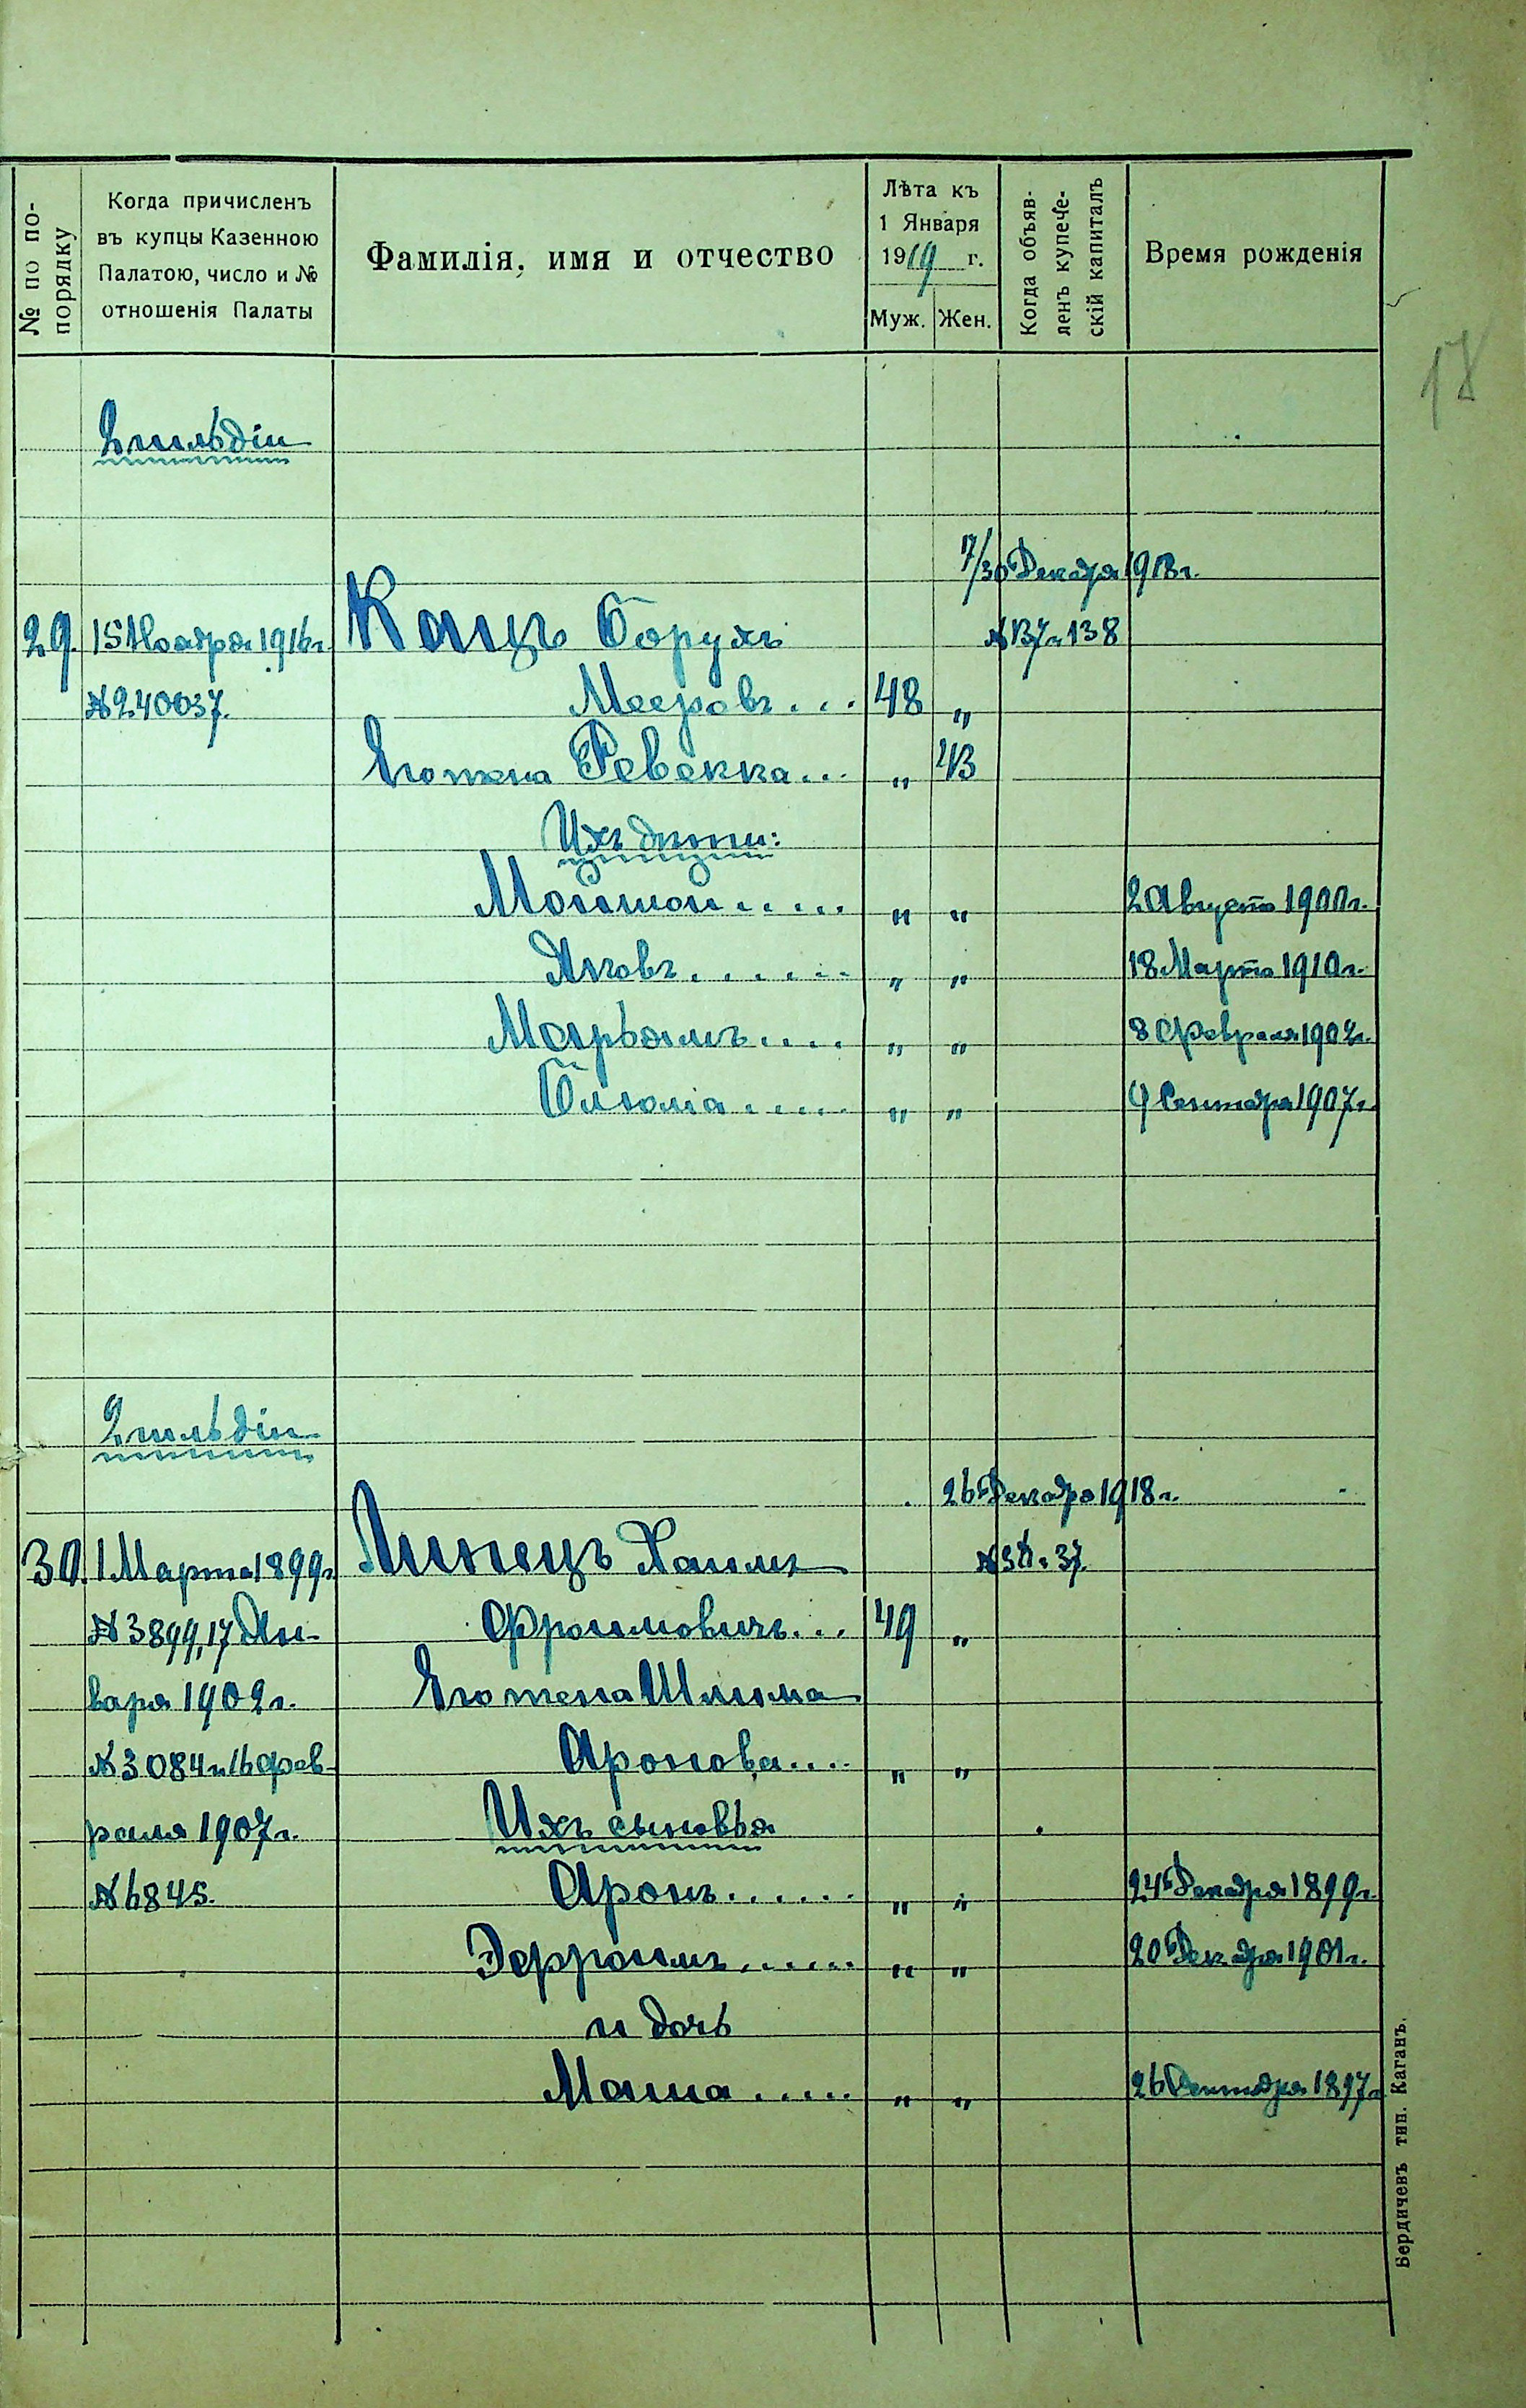 № по по-
порядку
Когда причисленъ
въ купцы Казенною
Палатою, число и №
отношенія Палаты
Фамилія, имя и отчество
Лѣта къ
1 Января
1919 г.
Муж. Жен.
Когда объяв-
ленъ купече-
скій капиталъ
Время рожденія
18
2 гильдіи
17/30 Декабря 1918 г.
29. 15 Ноября 1916 г. Кацъ Борухъ №137 и 138
№240037. Мееровъ... 48 „
Его жена Ревекка... „ 43
Ихъ дѣти:
Мойшой..... „ „ 2 Августа 1900 г.
Яковъ....... „ „ 18 Марта 1910 г.
Марьямъ.... „ „ 8 Февраля 1902 г.
Блюма..... „ „ 9 Сентября 1907 г.
2 гильдіи
26 Декабря 1918 г.
30. 1 Марта 1899 г. Линецъ Хаимъ
№3899, 17 Ян- Фроимовичъ... 49 „
варя 1902 г. Его жена Шлима
№3084 и 16 Фев- Аронова.... „ „
раля 1907 г. Ихъ сыновья
№6845. Аронъ...... „ „ 24 Декабря 1899 г.
Эфроимъ...... „ „ 20 Декабря 1901 г.
и дочь
Маша..... „ „ 26 Сентября 1897 г.
Бердичевъ тип. Каганъ.